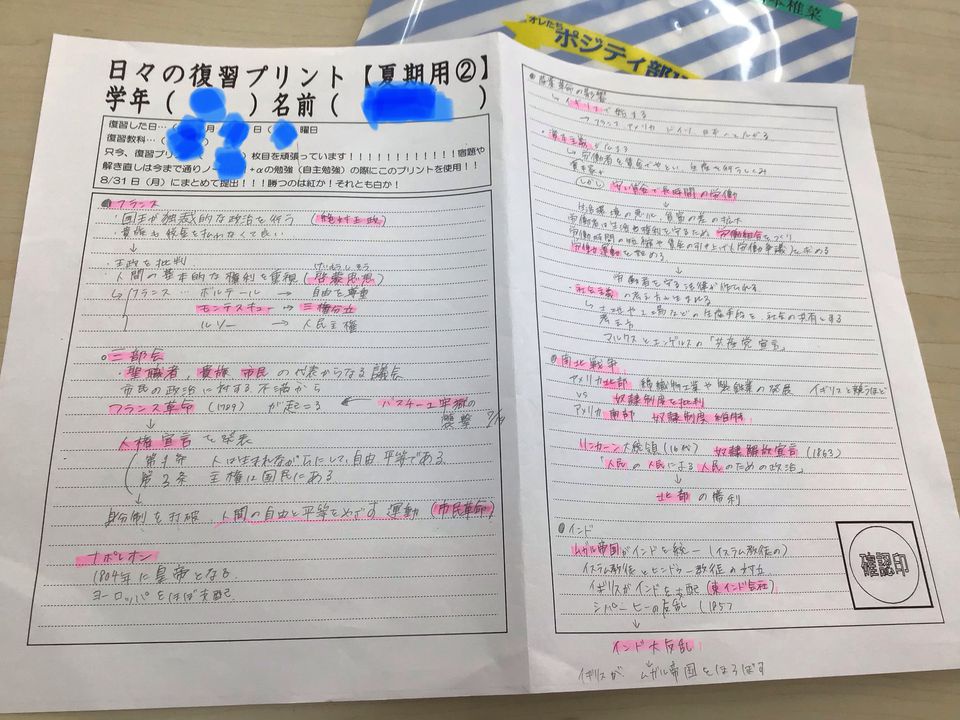 本椎菜
オレたち。
ポジティ部
日々の復習プリント【夏期用②】
学年( )名前( )
復習した日…( 月 日( 曜日
復習教科…(
只今、復習プリ 枚目を頑張っています!!!!!!!!!!!!!宿題や
解き直しは今まで通りノー +αの勉強(自主勉強)の際にこのプリントを使用!!
8/31日(月)にまとめて提出!!!勝つのは紅か!それとも白か!
●フランス
・国王が独裁的な政治を行う(絶対王政)
・貴族は税金を払わなくて良い
↓
・王政を批判
けいもうしそう
・人間の基本的な権利を重視(啓蒙思想)
↳フランス ボルテール → 自由を尊重
モンテスキュー → 三権分立
ルソー → 人民主権
○三部会
・聖職者、貴族 市民の代表からなる議会
市民の政治に対する不満から
フランス革命 (1789) が起こる ← バスチーユ牢獄の
襲撃 7/14
↓
人権宣言を発表
第1条 人は生まれながらにして、自由 平等である
第3条 主権は国民にある
↓
身分制を打破、人間の自由と平等をめざす運動(市民革命)
ナポレオン
1804年に皇帝となる
ヨーロッパをほぼ支配
●産業革命の影響
↳イギリスで始まる
→フランス アメリカ ドイツ 日本へと広がる
・資本主義が広まる
↳労働者を賃金でやとい、生産を行うしくみ
資本家が
(しかし) 安い賃金で長時間の労働
↓
生活環境の悪化、貧富の差の拡大
労働者は生活や権利を守るため 労働組合をつくり
労働時間の短縮や賃金の引き上げを労働争議 を求める
労働運動を始める
↓
労働者を守る法律が作られる
・社会主義の考え方が生まれる
↳土地や工場などの生産手段を、社会の共有とする
考え方
マルクスとエンゲルスの「共産党宣言」
●南北戦争
アメリカ北部 綿織物工業や製鉄業の発展 イギリスと競うほど
VS 奴隷制度を批判
アメリカ南部 奴隷制度 維持
リンカーン大統領(16代) 奴隷解放宣言 (1863)
「人民の 人民による 人民のための政治」
↓
北部の勝利
●インド
ムガル帝国がインドを統一(イスラム教徒の)
イスラム教徒とヒンドゥー教徒の対立
イギリスがインドを支配(東インド会社)
シパーヒーの反乱 (1857
↓
インド大反乱
↓
イギリスが ムガル帝国をほろぼす
確認印